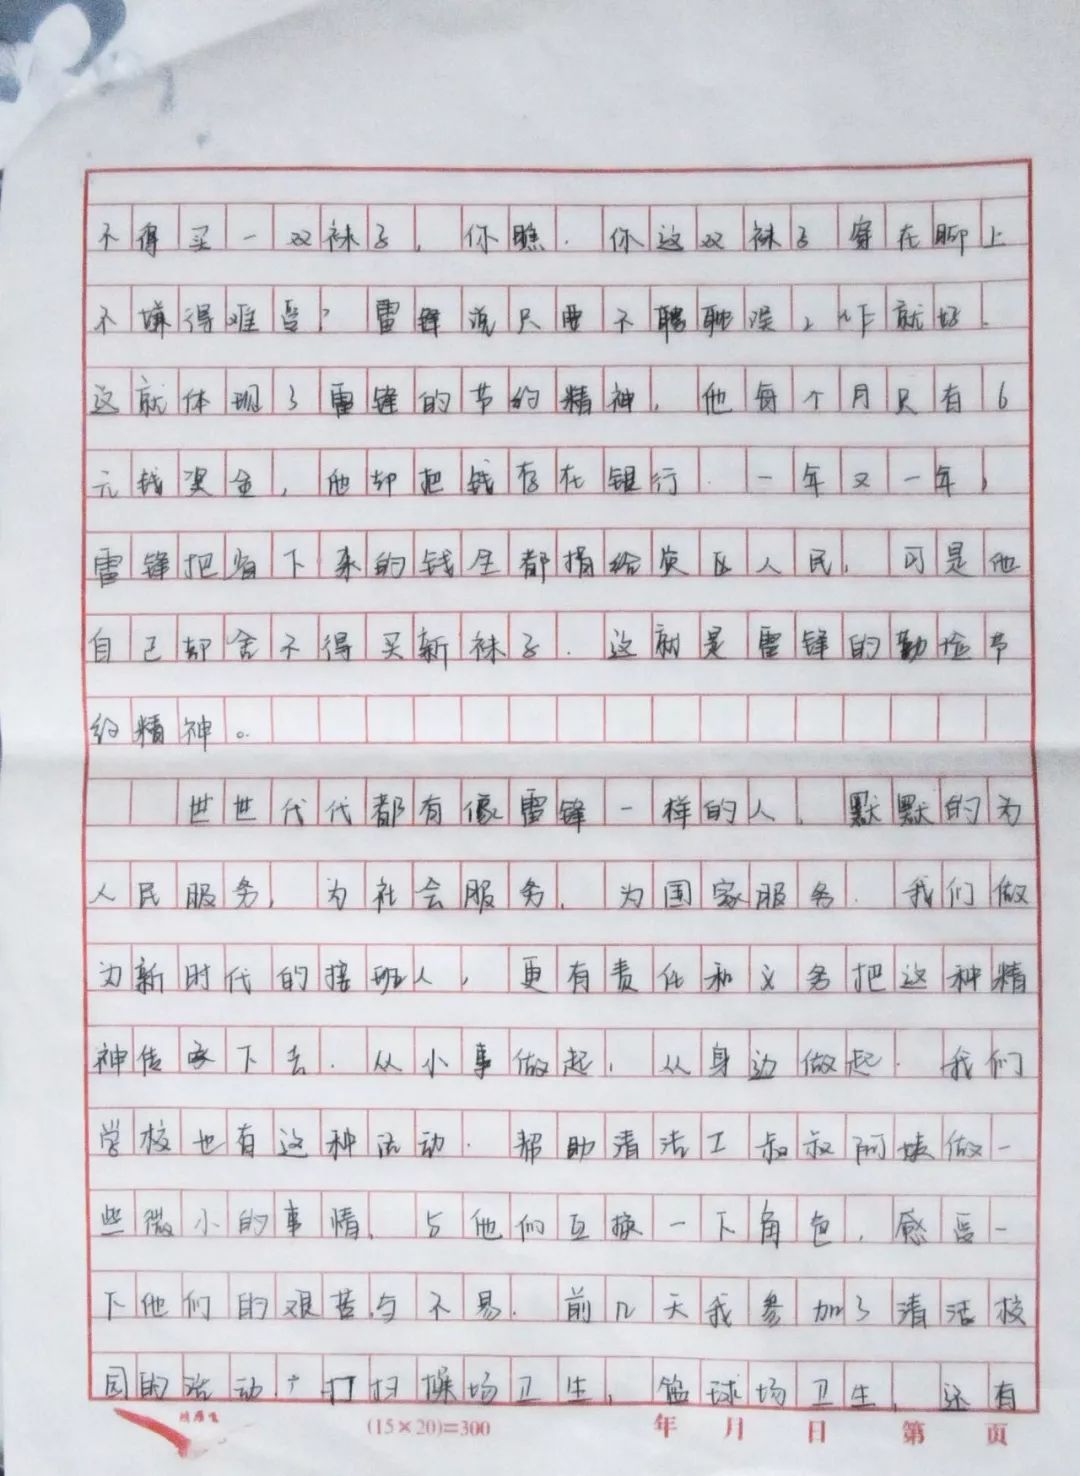 不得买一双袜子，你瞧．你这双袜子穿在脚上
不嫌得难受？雷锋说只要不 就好．
这就体现了雷锋的节约精神，他每个月只有6
元钱奖金，他却把钱存在银行．一年又一年，
雷锋把省下来的钱全都捐给灾区人民，可是他
自己却舍不得买新袜子．这就是雷锋的勤俭节
约精神。
世世代代都有像雷锋一样的人，默默的为
人民服务，为社会服务，为国家服务．我们做
为新时代的接班人，更有责任和义务把这种精
神传承下去．从小事做起，从身边做起．我们
学校也有这种活动．帮助清洁工叔叔阿姨做一
些微小的事情，与他们互换一下角色，感受一
下他们的艰苦与不易．前几天我参加了清洁校
园的活动，打扫操场卫生，篮球场卫生，还有
(15×20)=300 年 月 日 第 页